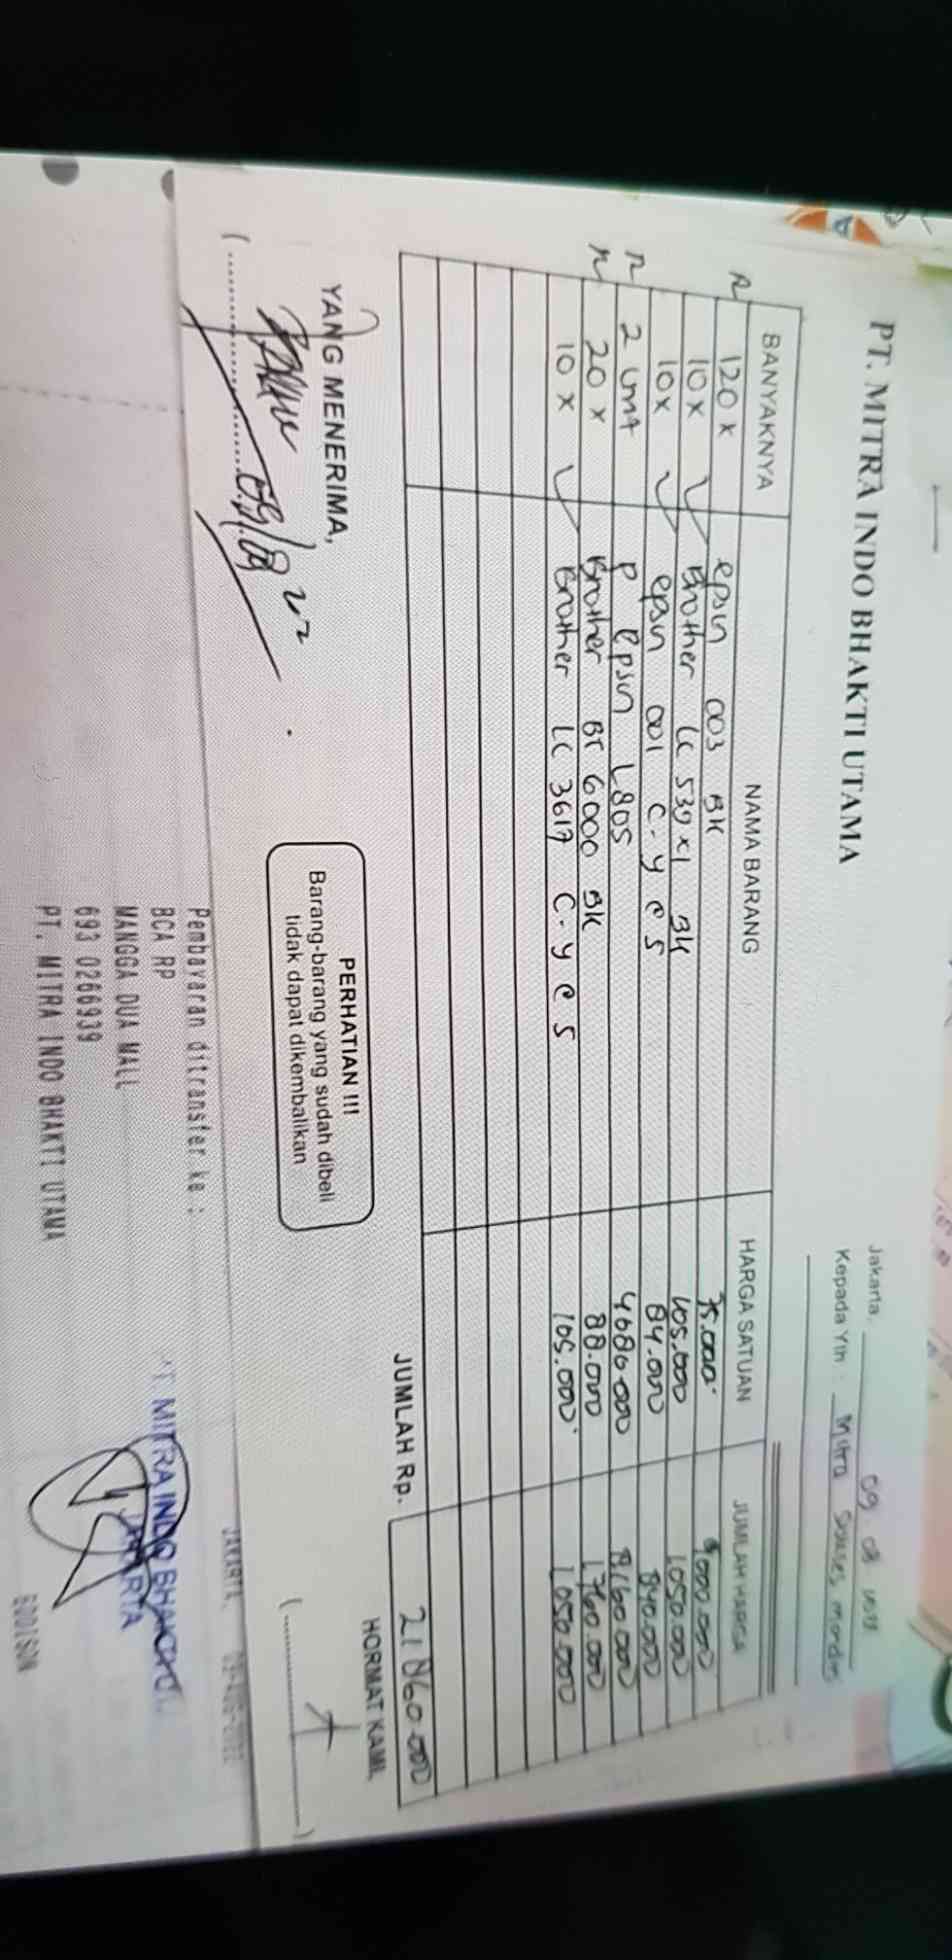 PT. MITRA INDO BHAKTI UTAMA
Jakarta, 09 08
Kepada Yth : Mitra Sukses Mandiri
BANYAKNYA NAMA BARANG HARGA SATUAN JUMLAH HARGA
120 x epsn 003 BK 75.000 9.000.000
10 x Brother LC 539 XL BK 105.000 1050.000
10 x epsn 001 C-Y e 5 84.000 840.000
2 unit P epsn L805 4080.000 8.160.000
20 x Brother BT 6000 BK 88.000 1.760.000
10 x Brother LC 3617 C-Y e 5 105.000 1.050.000
JUMLAH Rp. 21860.000
YANG MENERIMA,
HORMAT KAMI,
09/08 22
PERHATIAN !!!
Barang-barang yang sudah dibeli
tidak dapat dikembalikan
JAKARTA, 09-AUG-2022
Pembayaran ditransfer ke :
BCA RP
MANGGA DUA MALL
693 0266939
PT. MITRA INDO BHAKTI UTAMA
PT. MITRA INDO BHAKTI U
JAKARTA
EDDISON